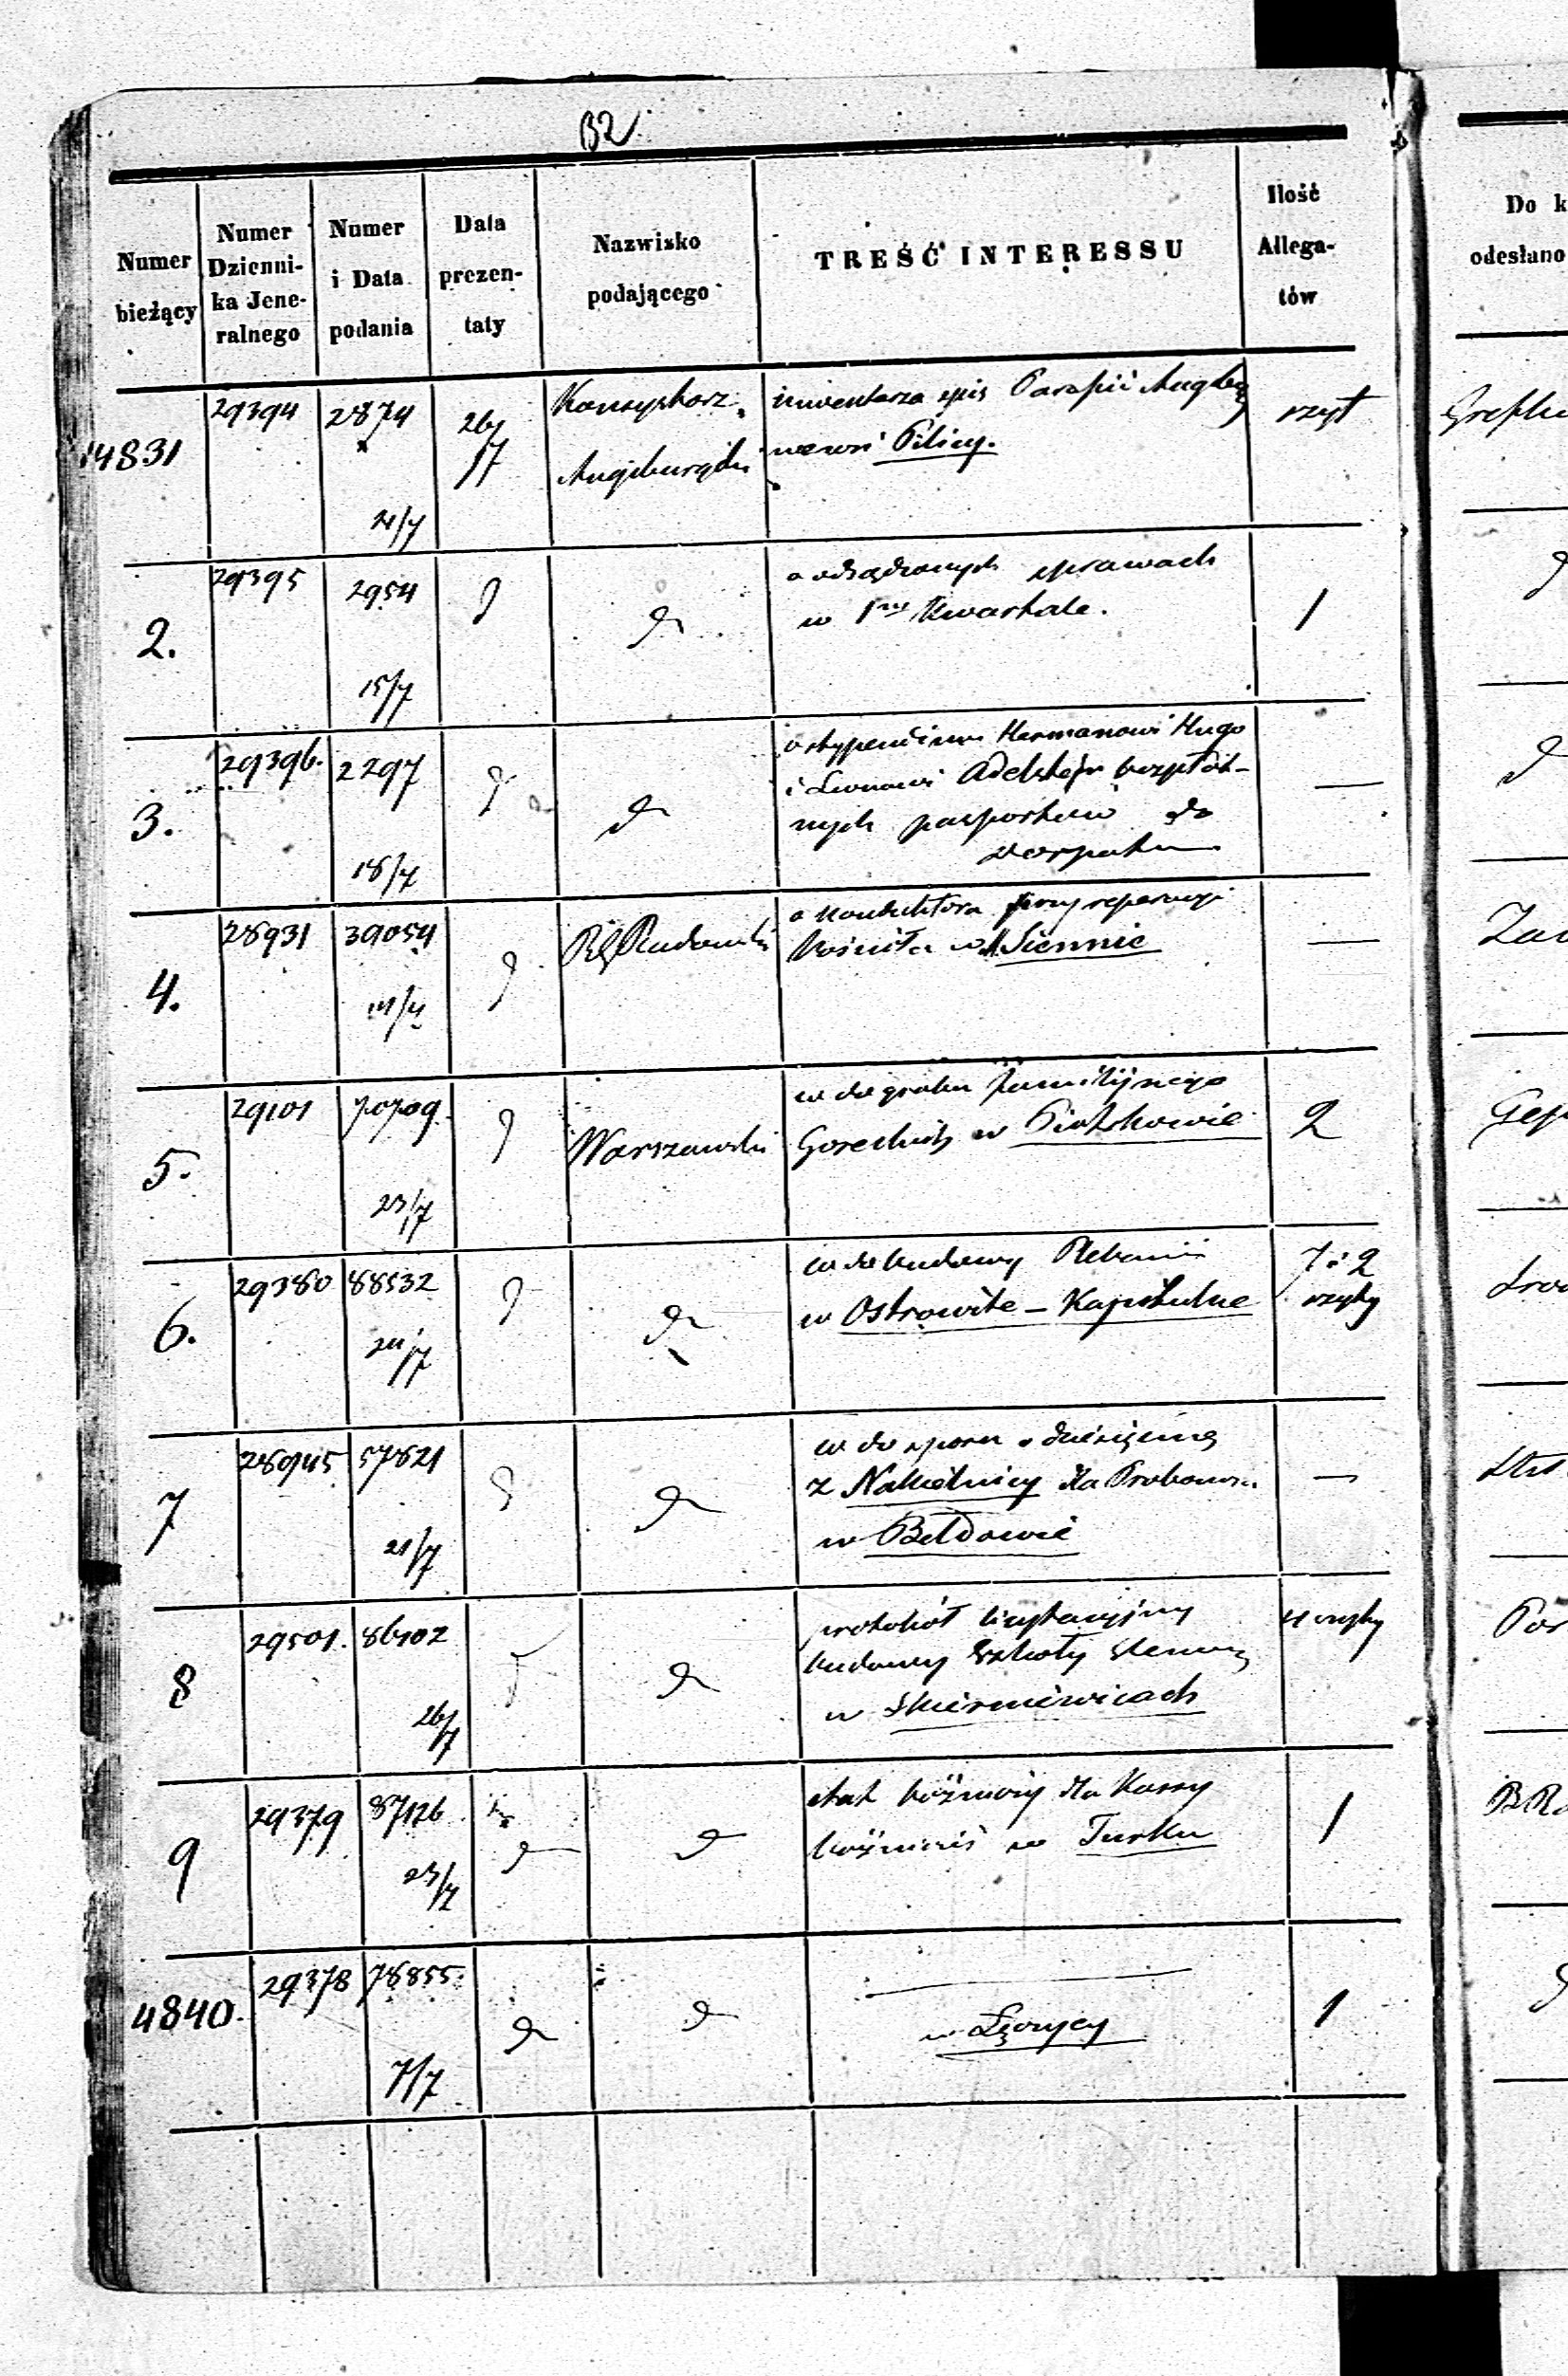 B2
Numer bieżący
Numer Dzienni- ka Jene- ralnego
Numer i Data podania
Data prezen- taty
Nazwisko podającego
TREŚĆ INTERESSU
Ilość Allega- tów
Do k
odesłano
14831 29394 2874 21/7 26/7
Konsystorz
Augsburgski
inwentarza spis Parafii Augsbg
we wsi Pilicy.
rzyt
2. 29395 2954 15/7 d d
o odsądzonych sprawach
w 1ym Kwartale.
1
d
3. 29396. 2297 18/7 d d
o stypendium Hermanowi Hugo
i Leonowi bezpłat-
nych paszportów do
Dorpatu
—
d
4. 28931 39054 14/7 d RG Radomski
o konduktora przy reperacyi
kościła w Siennie
—
5. 29101 70709. 23/7 d Warszawski
w do grobu familijnego
Goreckich w Piotrkowie
2
6. 29380 88532 24/7 d d
w do budowy Plebanii
w Ostrowite – Kapitulne
7 i 2
rzyty
7 28945 57821 21/7 d d
w do sporu o dziesięcinę
z Nakielnicy dla Probosz.
w Bełdowie
—
8 29501. 86402 26/7 d
protokół licytacyjny
budowy Szkoły Elemen
w Skierniewicach
4 rzyty
9 29379 87126 23/7 d d
etat bóżniczy dla Kassy
bóżniczéj w Turku
1
4840. 29378 78855. 7/7 d d
—
w Łęczycy
1
d